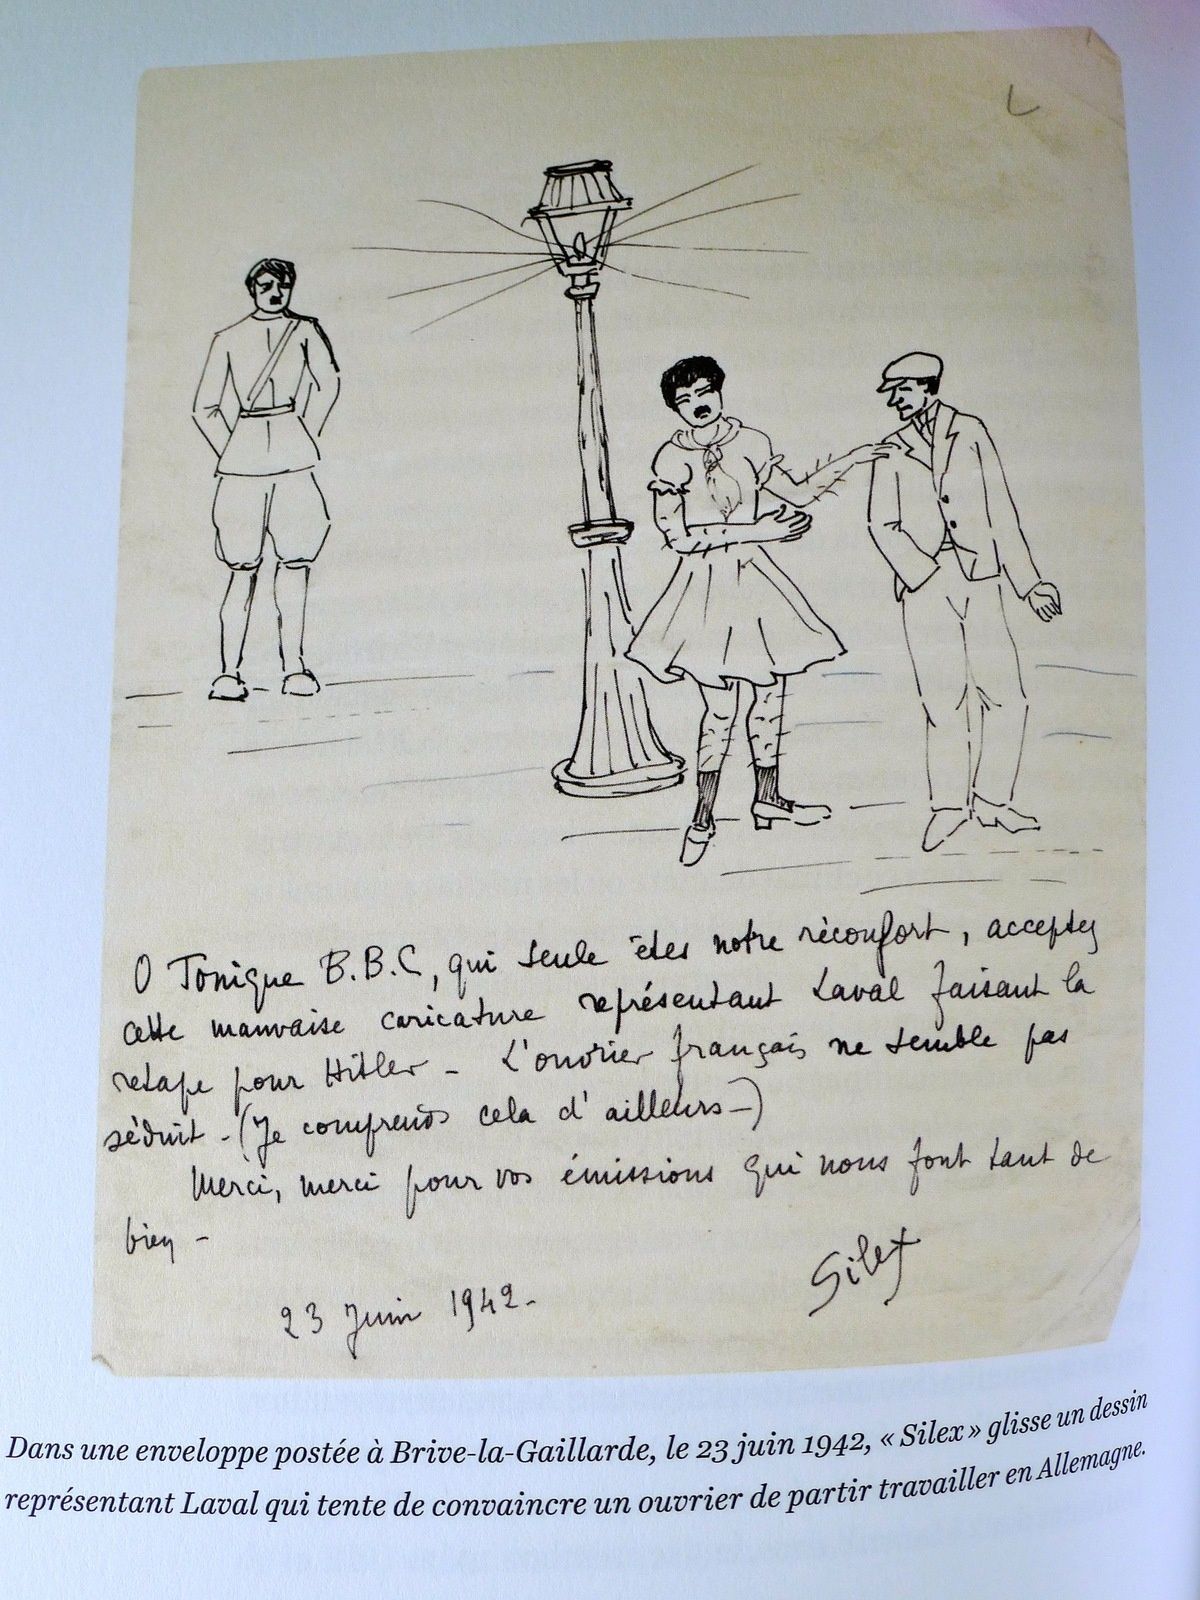 O Tonique B.B.C, qui seule êtes notre réconfort, acceptez
cette mauvaise caricature représentant Laval faisant la
retape pour Hitler - L'ouvrier français ne semble pas
séduit - (Je comprends cela d'ailleurs -)
Merci, merci pour vos émissions qui nous font tant de
bien -
Silex
23 Juin 1942 -
Dans une enveloppe postée à Brive-la-Gaillarde, le 23 juin 1942, « Silex » glisse un dessin
représentant Laval qui tente de convaincre un ouvrier de partir travailler en Allemagne.